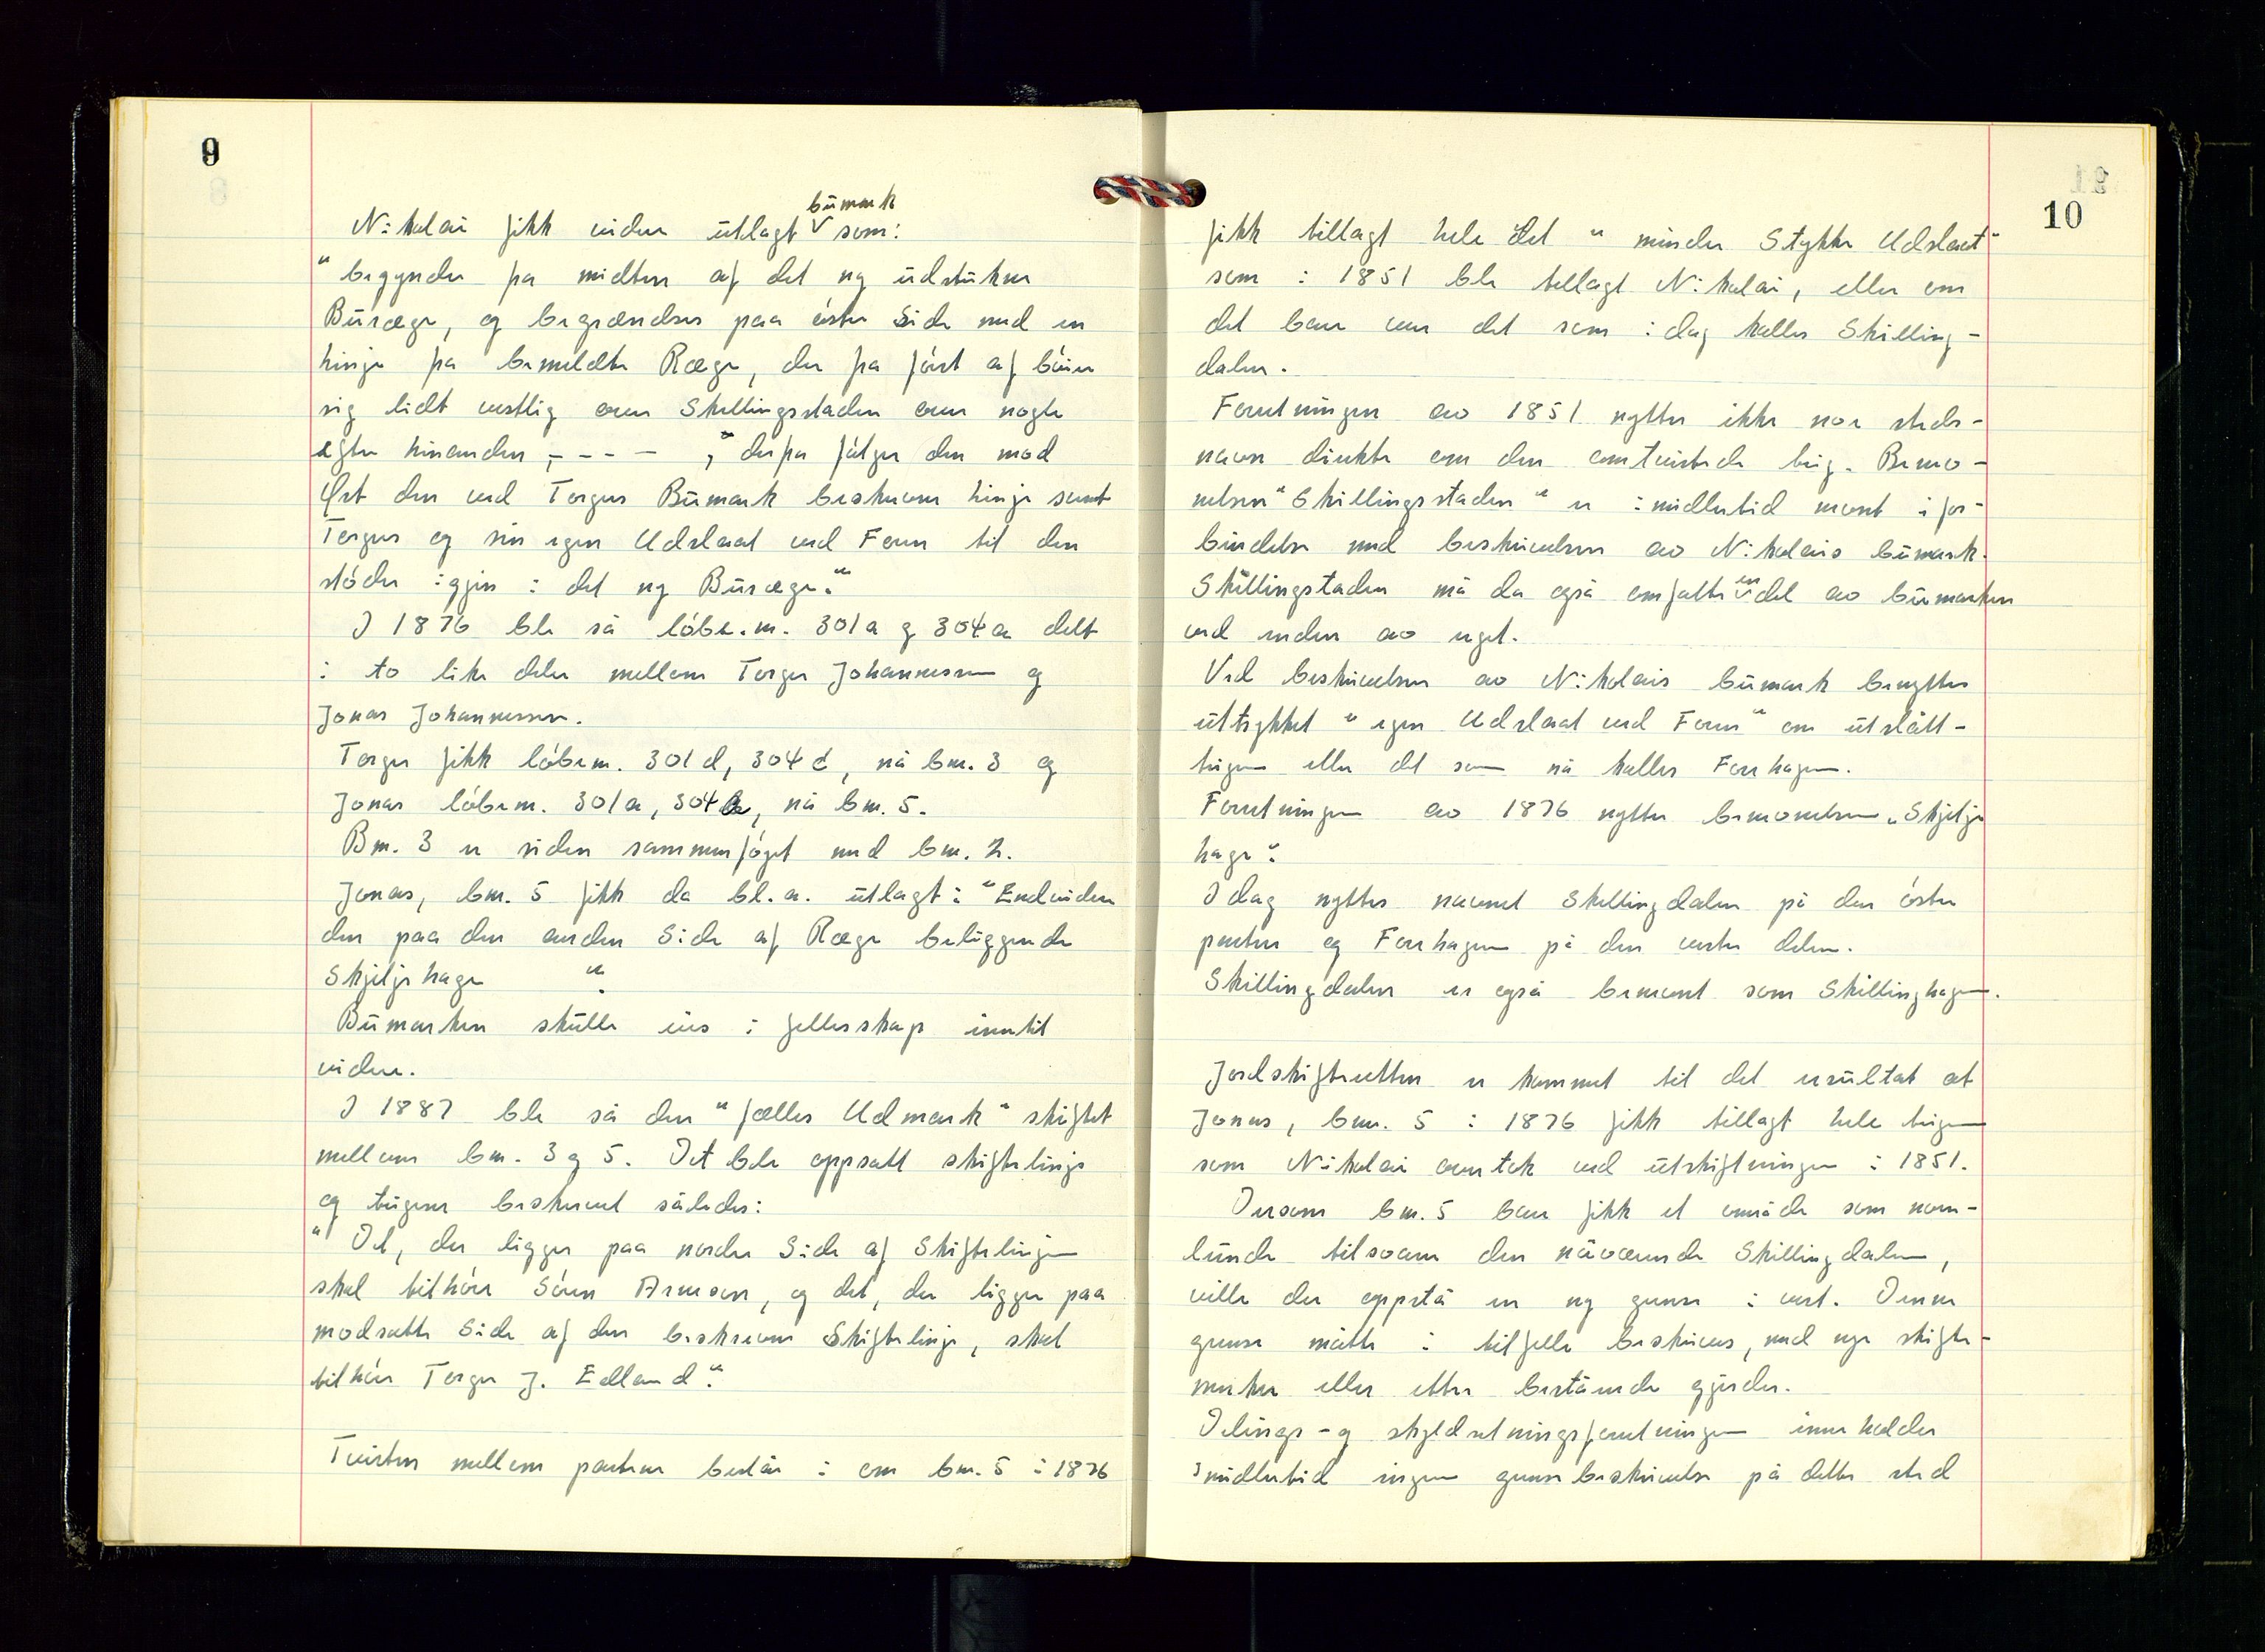 9
Nikolai fikk videre utlagt bumark som:
"begynder fra midten af det ny udstukne
Buræge, og begrændses paa östre Side med en
Linje fra bemeldte Ræge, der fra först af böier
sig lidt vestlig over Skillingsstaden over nogle
efter hinanden, - - - - ", derfra fölger den mod
Öst den ved Torgers Bumark beskrevne Linje samt
Torgers og sin egen Udslaat ved Feren til den
støder igjen i det ny Buræge."
I 1876 ble så löbe.nr. 301a og 304a delt
i to like deler mellom Torger Johannessen og
Jonas Johannessen.
Torger fikk löbenr. 301d, 304c, nå bnr. 3 og
Jonas löbenr. 301a, 304a, nå bnr. 5.
Bnr. 3 er siden sammenföyet med bnr. 2.
Jonas, bnr. 5 fikk da bl.a. utlagt: "Endvidere
den paa den anden Side af Ræge beliggende
Skjeljehage ".
Bumarken skulle eies i fellesskap inntil
videre.
I 1887 ble så den "fælles Udmark" skiftet
mellom bnr. 3 og 5. Det ble oppsatt skiftelinje
og teigene beskrevet således:
"Det, der ligger paa nordre Side af Skiftelinjen
skal tilhöre Sören Arneson, og det, der ligger paa
modsatte Side af den beskrevne Skiftelinje, skal
tilhöre Torger J. Edland."
Tvisten mellom partene består i om bnr. 5 i 1876
10
fikk tillagt hele det "mindre Stykke Udslaat"
som i 1851 ble tillagt Nikolai, eller om
det bare var det som i dag kalles Skilling-
dalen.
Forretningen av 1851 nytter ikke noe steds-
navn direkte om den omtvistede teig. Benev-
nelsen "Skillingsstaden" er imidlertid nevnt i for-
bindelse med beskrivelsen av Nikolais bumark.
Skillingstaden må da også omfatte en del av bumarken
ved enden av reget.
Ved beskrivelsen av Nikolais bumark benyttes
uttrykket "egen Udslaat ved Feren" om utslått-
teigen eller det som nå kalles Ferrhagen.
Forretningen av 1876 nytter benevnelsen "Skjelje
hage".
I dag nyttes navnet Skillingdalen på den östre
parten og Ferrhagen på den vestre delen.
Skillingdalen er også benevnt som Skillinghagen.
Jordskifteretten er kommet til det resultat at
Jonas, bnr. 5 i 1876 fikk tillagt hele teigen
som Nikolai overtok ved utskiftningen i 1851.
Dersom bnr. 5 bare fikk et område som noen-
lunde tilsvarer den nåværende Skillingdalen,
ville der oppstå en ny grense i vest. Denne
grense måtte i tilfelle beskrives, med nye skifte-
merker eller etter bestående gjerder.
Delings- og skyldsetningsforretningen inneholder
imidlertid ingen grensebeskrivelse på dette sted